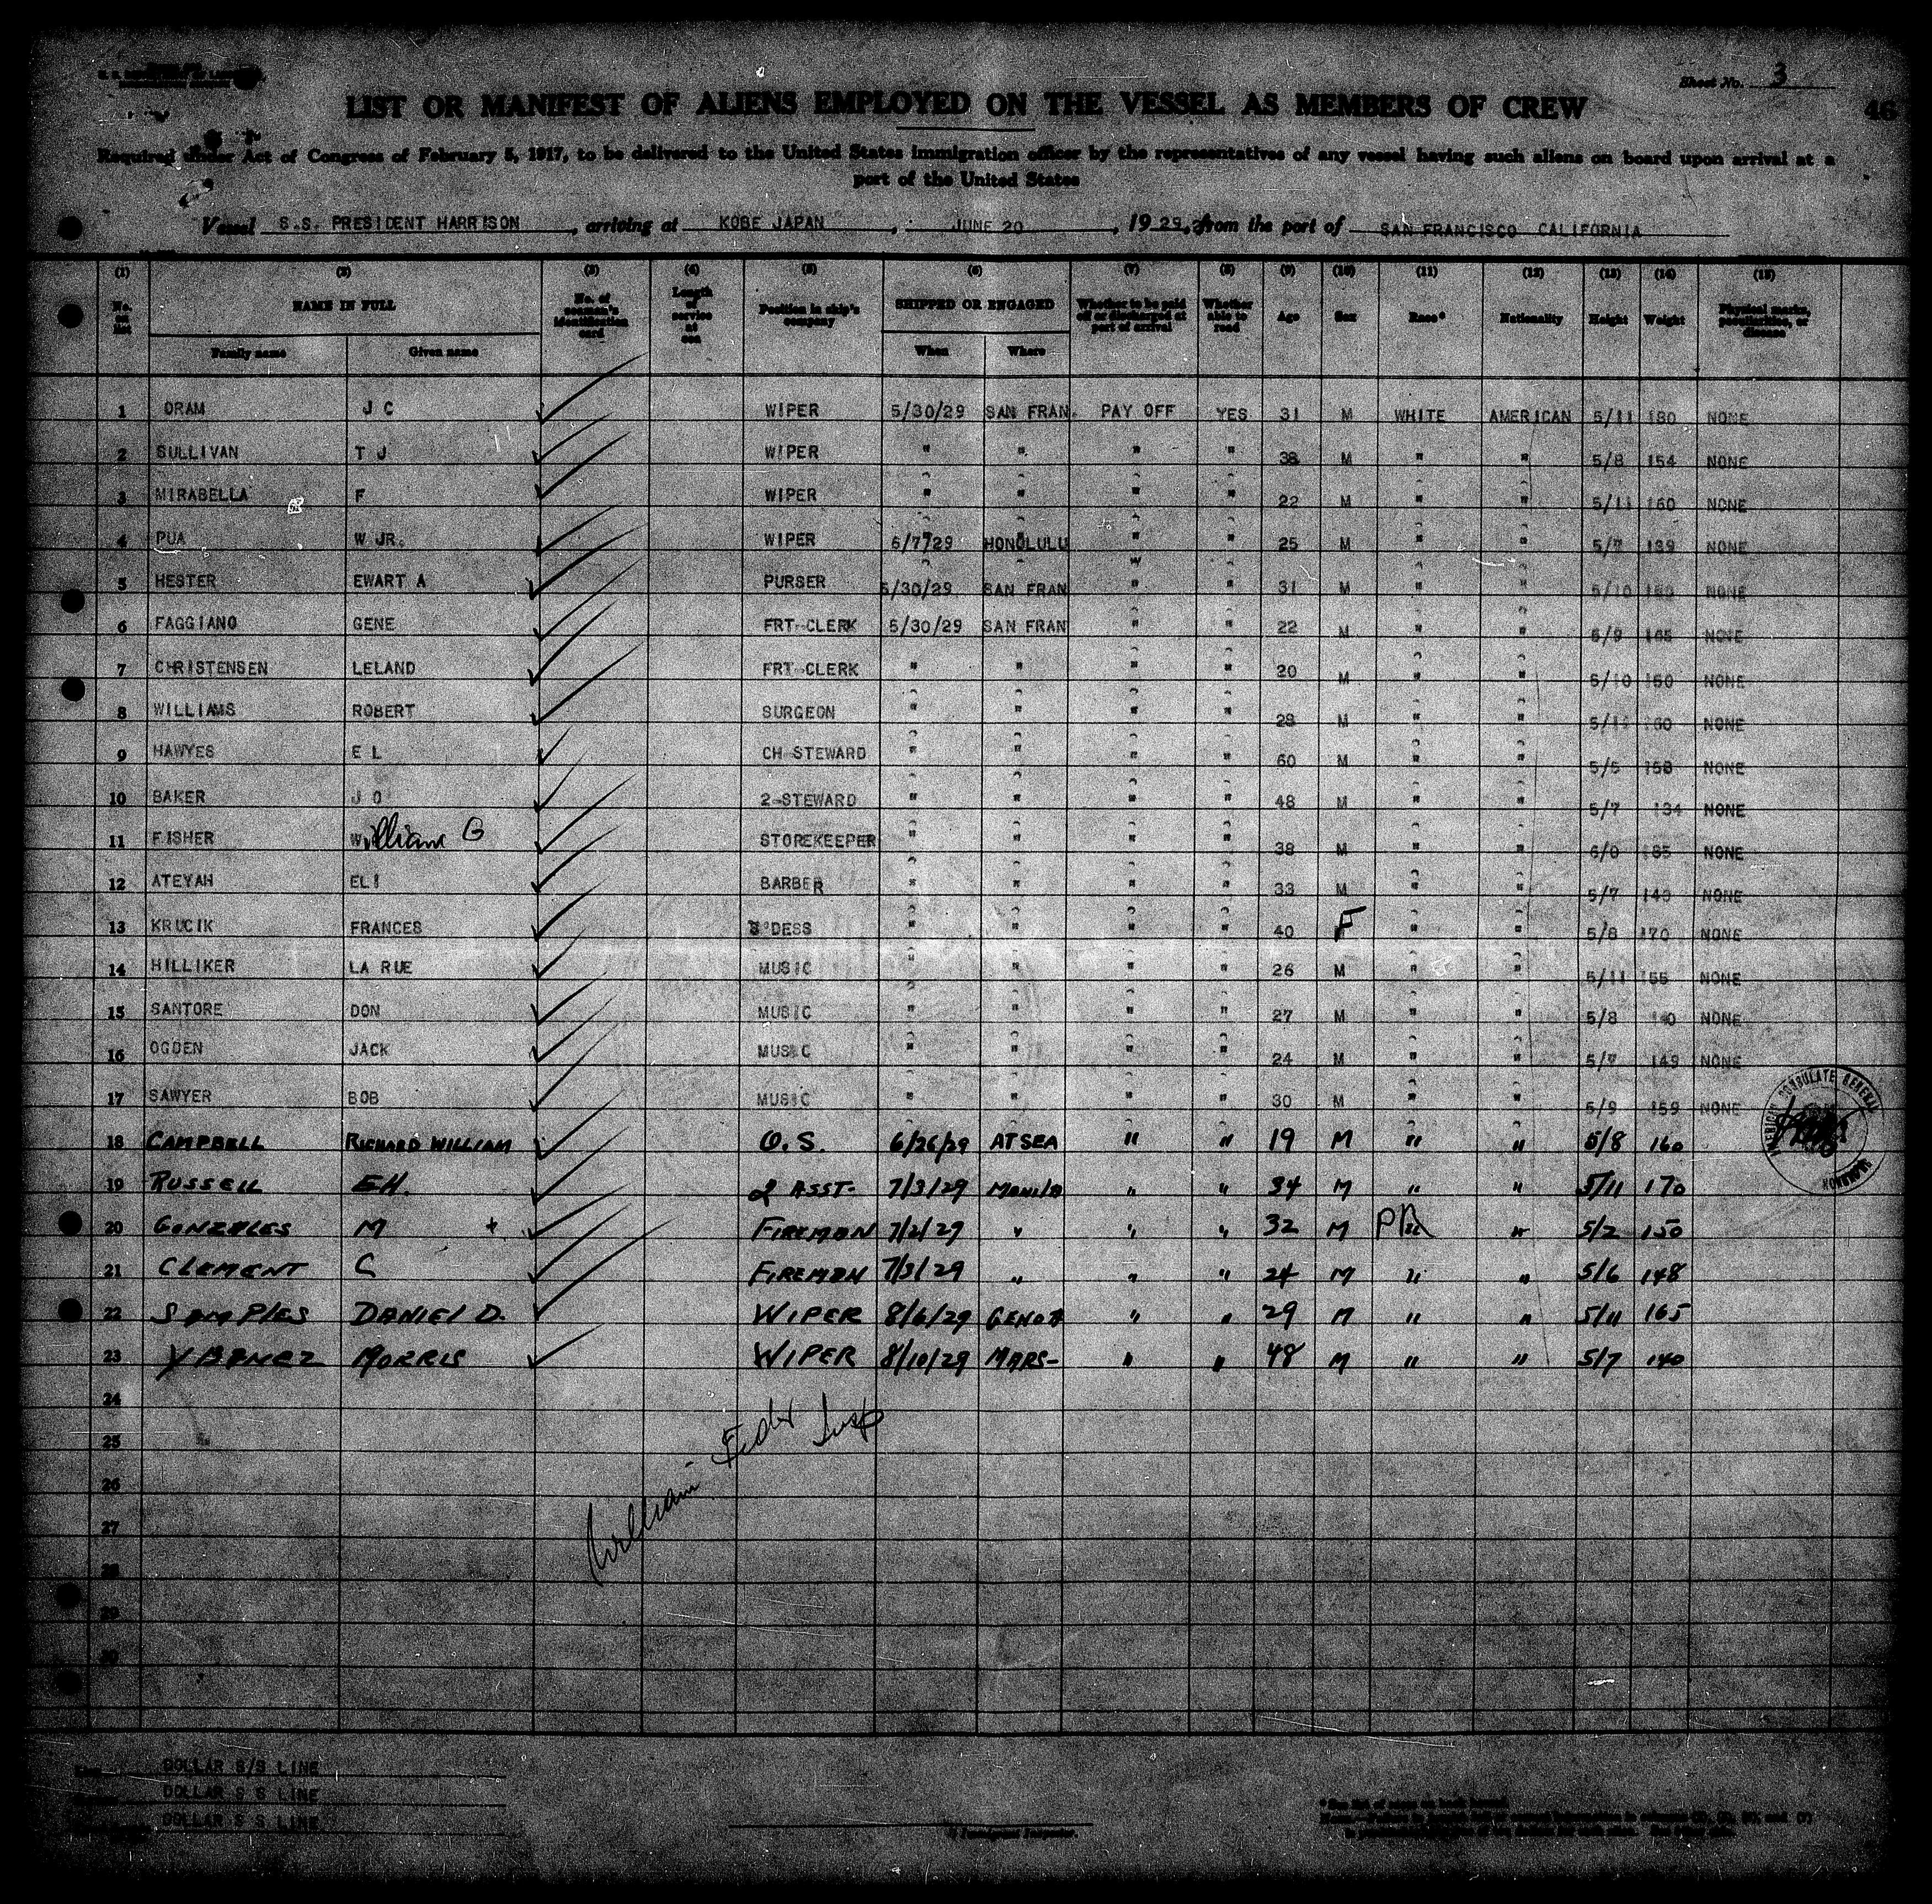 Sheet No. 3
46
LIST OR MANIFEST OF ALIENS EMPLOYED ON THE VESSEL AS MEMBERS OF CREW
Required under Act of Congress of February 5, 1917, to be delivered to the United States immigration officer by the representatives of any vessel having such aliens on board upon arrival at a
port of the United States
Vessel S.S. PRESIDENT HARRISON, arriving at KOBE JAPAN, JUNE 20, 1929, from the port of SAN FRANCISCO CALIFORNIA
(1) (2) (3) (4) (5) (6) (7) (8) (9) (10) (11) (12) (13) (14) (15)
No. on list NAME IN FULL Family name Given name No. of seaman's identification card Length of service at sea Position in ship's company SHIPPED OR ENGAGED When Where Whether to be paid off or discharged at port of arrival Whether able to read Age Sex Race* Nationality Height Weight Physical marks, peculiarities, or disease
1 ORAM J C WIPER 5/30/29 SAN FRAN. PAY OFF YES 31 M WHITE AMERICAN 5/11 180 NONE
2 SULLIVAN T J WIPER " " " " 38 M " " 5/8 154 NONE
3 MIRABELLA F WIPER " " " " 22 M " " 5/11 160 NONE
4 PUA W JR. WIPER 6/7/29 HONOLULU " " 25 M " " 5/7 139 NONE
5 HESTER EWART A PURSER 5/30/29 SAN FRAN " " 31 M " " 5/10 NONE
6 FAGGIANO GENE FRT-CLERK 5/30/29 SAN FRAN " " 22 M " " 5/9 165 NONE
7 CHRISTENSEN LELAND FRT-CLERK " " " " 20 M " " 5/10 150 NONE
8 WILLIAMS ROBERT SURGEON " " " " 28 M " " 5/11 160 NONE
9 HAWYES E L CH-STEWARD " " " " 60 M " " 5/5 158 NONE
10 BAKER J O 2-STEWARD " " " " 48 M " " 5/7 134 NONE
11 FISHER William G STOREKEEPER " " " " 38 M " " 6/0 185 NONE
12 ATEYAH ELI BARBER " " " " 33 M " " 5/7 143 NONE
13 KRUCIK FRANCES S'DESS " " " " 40 F " " 5/8 170 NONE
14 HILLIKER LA RUE MUSIC " " " " 26 M " " 5/11 155 NONE
15 SANTORE DON MUSIC " " " " 27 M " " 5/8 NONE
16 OGDEN JACK MUSIC " " " " 24 M " " 5/7 149 NONE
17 SAWYER BOB MUSIC " " " " 30 M " " 5/9 159 NONE
18 CAMPBELL RICHARD WILLIAM O.S. 6/26/29 AT SEA " " 19 M " " 5/8 160
19 RUSSELL E.H. 2 ASST. 7/3/29 MANILA " " 34 M " " 5/11 170
20 GONZALES M + FIREMAN 7/2/29 " " " 32 M PR " 5/2 150
21 CLEMENT C FIREMAN 7/3/29 " " " 24 M " " 5/6 148
22 SAMPLES DANIEL D. WIPER 8/6/29 GENOA " " 29 M " " 5/11 165
23 YBANEZ MORRIS WIPER 8/10/29 MARS- " " 48 M " " 5/7 140
24
25
26
27
28
29
30
AMERICAN CONSULATE GENERAL
William Insp
DOLLAR S/S LINE
DOLLAR S S LINE
DOLLAR S S LINE
Immigrant Inspector.